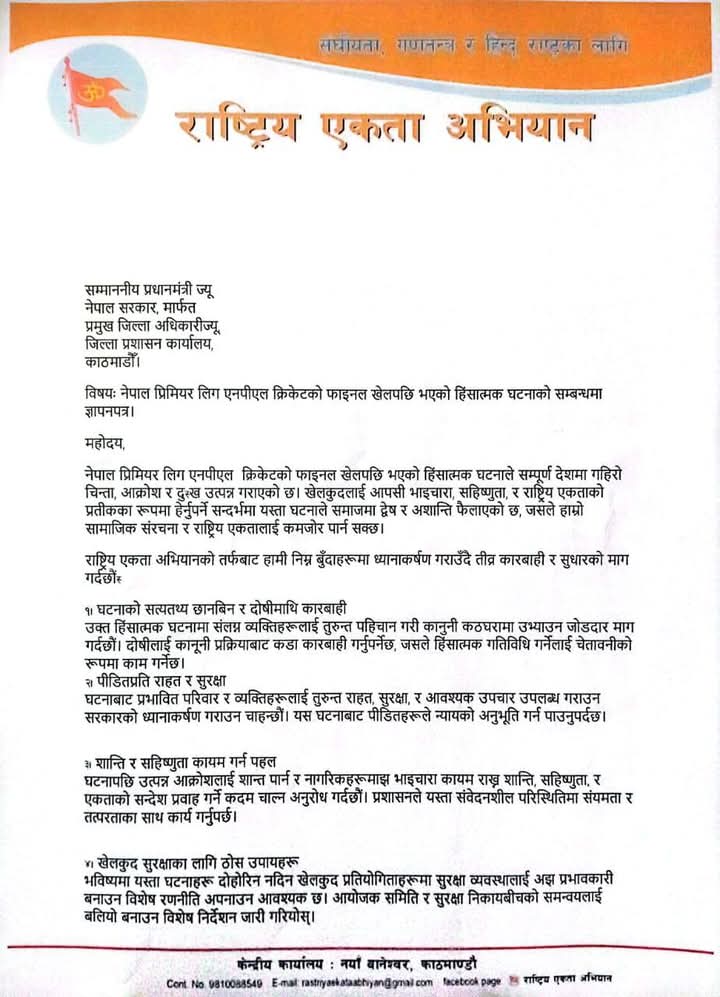 संघीयता, गणतन्त्र र हिन्दु राष्ट्रका लागि
राष्ट्रिय एकता अभियान
सम्माननीय प्रधानमंत्री ज्यू
नेपाल सरकार, मार्फत
प्रमुख जिल्ला अधिकारीज्यू,
जिल्ला प्रशासन कार्यालय,
काठमाडौँ।
विषयः नेपाल प्रिमियर लिग एनपीएल क्रिकेटको फाइनल खेलपछि भएको हिंसात्मक घटनाको सम्बन्धमा
ज्ञापनपत्र।
महोदय,
नेपाल प्रिमियर लिग एनपीएल क्रिकेटको फाइनल खेलपछि भएको हिंसात्मक घटनाले सम्पूर्ण देशमा गहिरो
चिन्ता, आक्रोश र दुःख उत्पन्न गराएको छ। खेलकुदलाई आपसी भाइचारा, सहिष्णुता, र राष्ट्रिय एकताको
प्रतीकका रूपमा हेर्नुपर्ने सन्दर्भमा यस्ता घटनाले समाजमा द्वेष र अशान्ति फैलाएको छ, जसले हाम्रो
सामाजिक संरचना र राष्ट्रिय एकतालाई कमजोर पार्न सक्छ।
राष्ट्रिय एकता अभियानको तर्फबाट हामी निम्न बुँदाहरूमा ध्यानाकर्षण गराउँदै तीव्र कारबाही र सुधारको माग
गर्दछौंः
१। घटनाको सत्यतथ्य छानबिन र दोषीमाथि कारबाही
उक्त हिंसात्मक घटनामा संलग्न व्यक्तिहरूलाई तुरुन्त पहिचान गरी कानुनी कठघरामा उभ्याउन जोडदार माग
गर्दछौं। दोषीलाई कानूनी प्रक्रियाबाट कडा कारबाही गर्नुपर्नेछ, जसले हिंसात्मक गतिविधि गर्नेलाई चेतावनीको
रूपमा काम गर्नेछ।
२। पीडितप्रति राहत र सुरक्षा
घटनाबाट प्रभावित परिवार र व्यक्तिहरूलाई तुरुन्त राहत, सुरक्षा, र आवश्यक उपचार उपलब्ध गराउन
सरकारको ध्यानाकर्षण गराउन चाहन्छौं। यस घटनाबाट पीडितहरूले न्यायको अनुभूति गर्न पाउनुपर्दछ।
३। शान्ति र सहिष्णुता कायम गर्न पहल
घटनापछि उत्पन्न आक्रोशलाई शान्त पार्न र नागरिकहरूमाझ भाइचारा कायम राख्न शान्ति, सहिष्णुता, र
एकताको सन्देश प्रवाह गर्ने कदम चाल्न अनुरोध गर्दछौं। प्रशासनले यस्ता संवेदनशील परिस्थितिमा संयमता र
तत्परताका साथ कार्य गर्नुपर्छ।
४। खेलकुद सुरक्षाका लागि ठोस उपायहरू
भविष्यमा यस्ता घटनाहरू दोहोरिन नदिन खेलकुद प्रतियोगिताहरूमा सुरक्षा व्यवस्थालाई अझ प्रभावकारी
बनाउन विशेष रणनीति अपनाउन आवश्यक छ। आयोजक समिति र सुरक्षा निकायबीचको समन्वयलाई
बलियो बनाउन विशेष निर्देशन जारी गरियोस्।
केन्द्रीय कार्यालय : नयाँ वानेश्वर, काठमाण्डौ
Cont. No. 9810088549 E-mail: rastriyaekataabhiyan@gmail.com facebook page राष्ट्रिय एकता अभियान